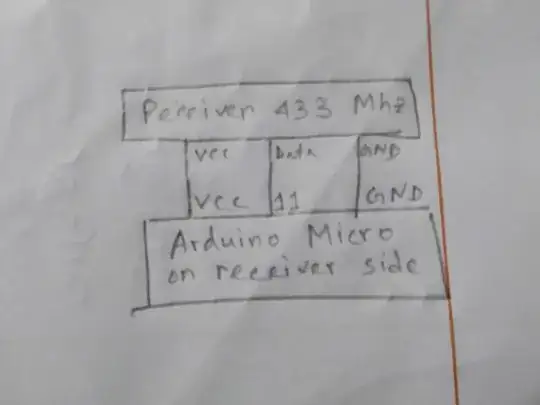 Receiver 433 Mhz
Vcc Data GND
Vcc 11 GND
Arduino Micro
on receiver side